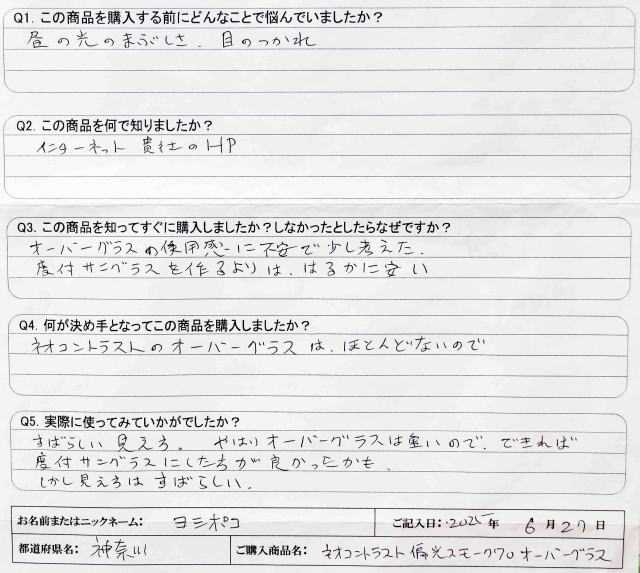 Q1. この商品を購入する前にどんなことで悩んでいましたか？
昼の光のまぶしさ. 目のつかれ
Q2. この商品を何で知りましたか？
インターネット 貴社のHP
Q3. この商品を知ってすぐに購入しましたか？しなかったとしたらなぜですか？
オーバーグラスの使用感に不安で少し考えた.
度付サングラスを作るよりは、はるかに安い
Q4. 何が決め手となってこの商品を購入しましたか？
ネオコントラストのオーバーグラスは、ほとんどないので
Q5. 実際に使ってみていかがでしたか？
すばらしい見え方。 やはりオーバーグラスは重いので、できれば
度付サングラスにした方が良かったかも.
しかし見え方はすばらしい.
お名前またはニックネーム： ヨシポコ
ご記入日： 2025年 6月27日
都道府県名： 神奈川
ご購入商品名： ネオコントラスト偏光スモーク70 オーバーグラス